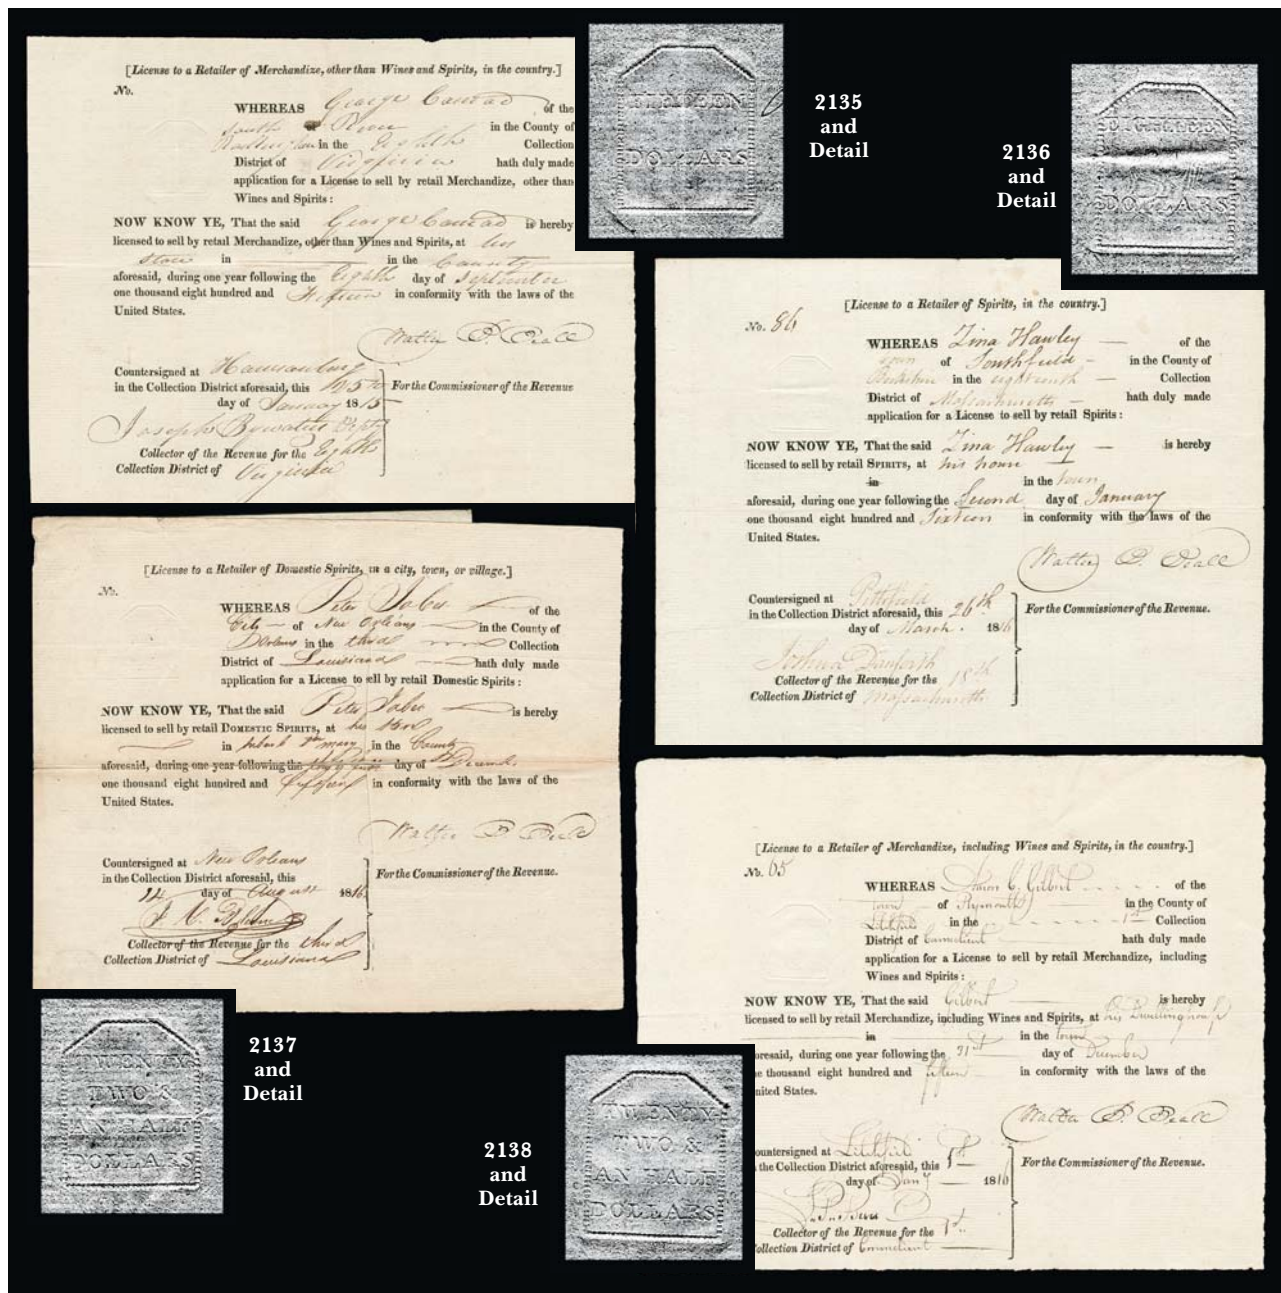 [License to a Retailer of Merchandize, other than Wines and Spirits, in the country.]
No.
WHEREAS George Conrad of the
of River in the County of
in the Eighth Collection
District of Virginia hath duly made
application for a License to sell by retail Merchandize, other than
Wines and Spirits :
NOW KNOW YE, That the said George Conrad is hereby
licensed to sell by retail Merchandize, other than Wines and Spirits, at his
store in in the County
aforesaid, during one year following the Eighth day of September
one thousand eight hundred and fifteen in conformity with the laws of the
United States.
Countersigned at
in the Collection District aforesaid, this
day of January 1815
For the Commissioner of the Revenue
Joseph Bywaters
Collector of the Revenue for the Eighth
Collection District of Virginia
FIFTEEN
DOLLARS
2135
and
Detail
2136
and
Detail
EIGHTEEN
DOLLARS
[License to a Retailer of Spirits, in the country.]
No. 86
WHEREAS Zina Hawley of the
town of Southfield in the County of
Berkshire in the eighteenth Collection
District of Massachusetts hath duly made
application for a License to sell by retail Spirits :
NOW KNOW YE, That the said Zina Hawley is hereby
licensed to sell by retail SPIRITS, at his house
in in the town
aforesaid, during one year following the Second day of January
one thousand eight hundred and Sixteen in conformity with the laws of the
United States.
Countersigned at Pittsfield
in the Collection District aforesaid, this 26th
day of March. 1816
For the Commissioner of the Revenue.
Joshua Danforth
Collector of the Revenue for the 18th
Collection District of Massachusetts
[License to a Retailer of Domestic Spirits, in a city, town, or village.]
No.
WHEREAS Peter of the
City of New Orleans in the County of
Orleans in the third Collection
District of Louisiana hath duly made
application for a License to sell by retail Domestic Spirits :
NOW KNOW YE, That the said Peter is hereby
licensed to sell by retail DOMESTIC SPIRITS, at his store
in in the County
aforesaid, during one year following the day of
one thousand eight hundred and fifteen in conformity with the laws of the
United States.
Countersigned at New Orleans
in the Collection District aforesaid, this
14 day of August 1816
For the Commissioner of the Revenue.
Collector of the Revenue for the third
Collection District of Louisiana
TWENTY
TWO &
AN HALF
DOLLARS
2137
and
Detail
2138
and
Detail
TWENTY
TWO &
AN HALF
DOLLARS
[License to a Retailer of Merchandize, including Wines and Spirits, in the country.]
No. 65
WHEREAS C. Gilbert of the
town of Plymouth in the County of
Litchfield in the 1st Collection
District of Connecticut hath duly made
application for a License to sell by retail Merchandize, including
Wines and Spirits :
NOW KNOW YE, That the said Gilbert is hereby
licensed to sell by retail Merchandize, including Wines and Spirits, at his Dwellinghouse
in in the town
oresaid, during one year following the 31st day of December
e thousand eight hundred and fifteen in conformity with the laws of the
nited States.
ountersigned at Litchfield
the Collection District aforesaid, this 1st
day of Jany 1816
For the Commissioner of the Revenue.
Collector of the Revenue for the 1st
ollection District of Connecticut